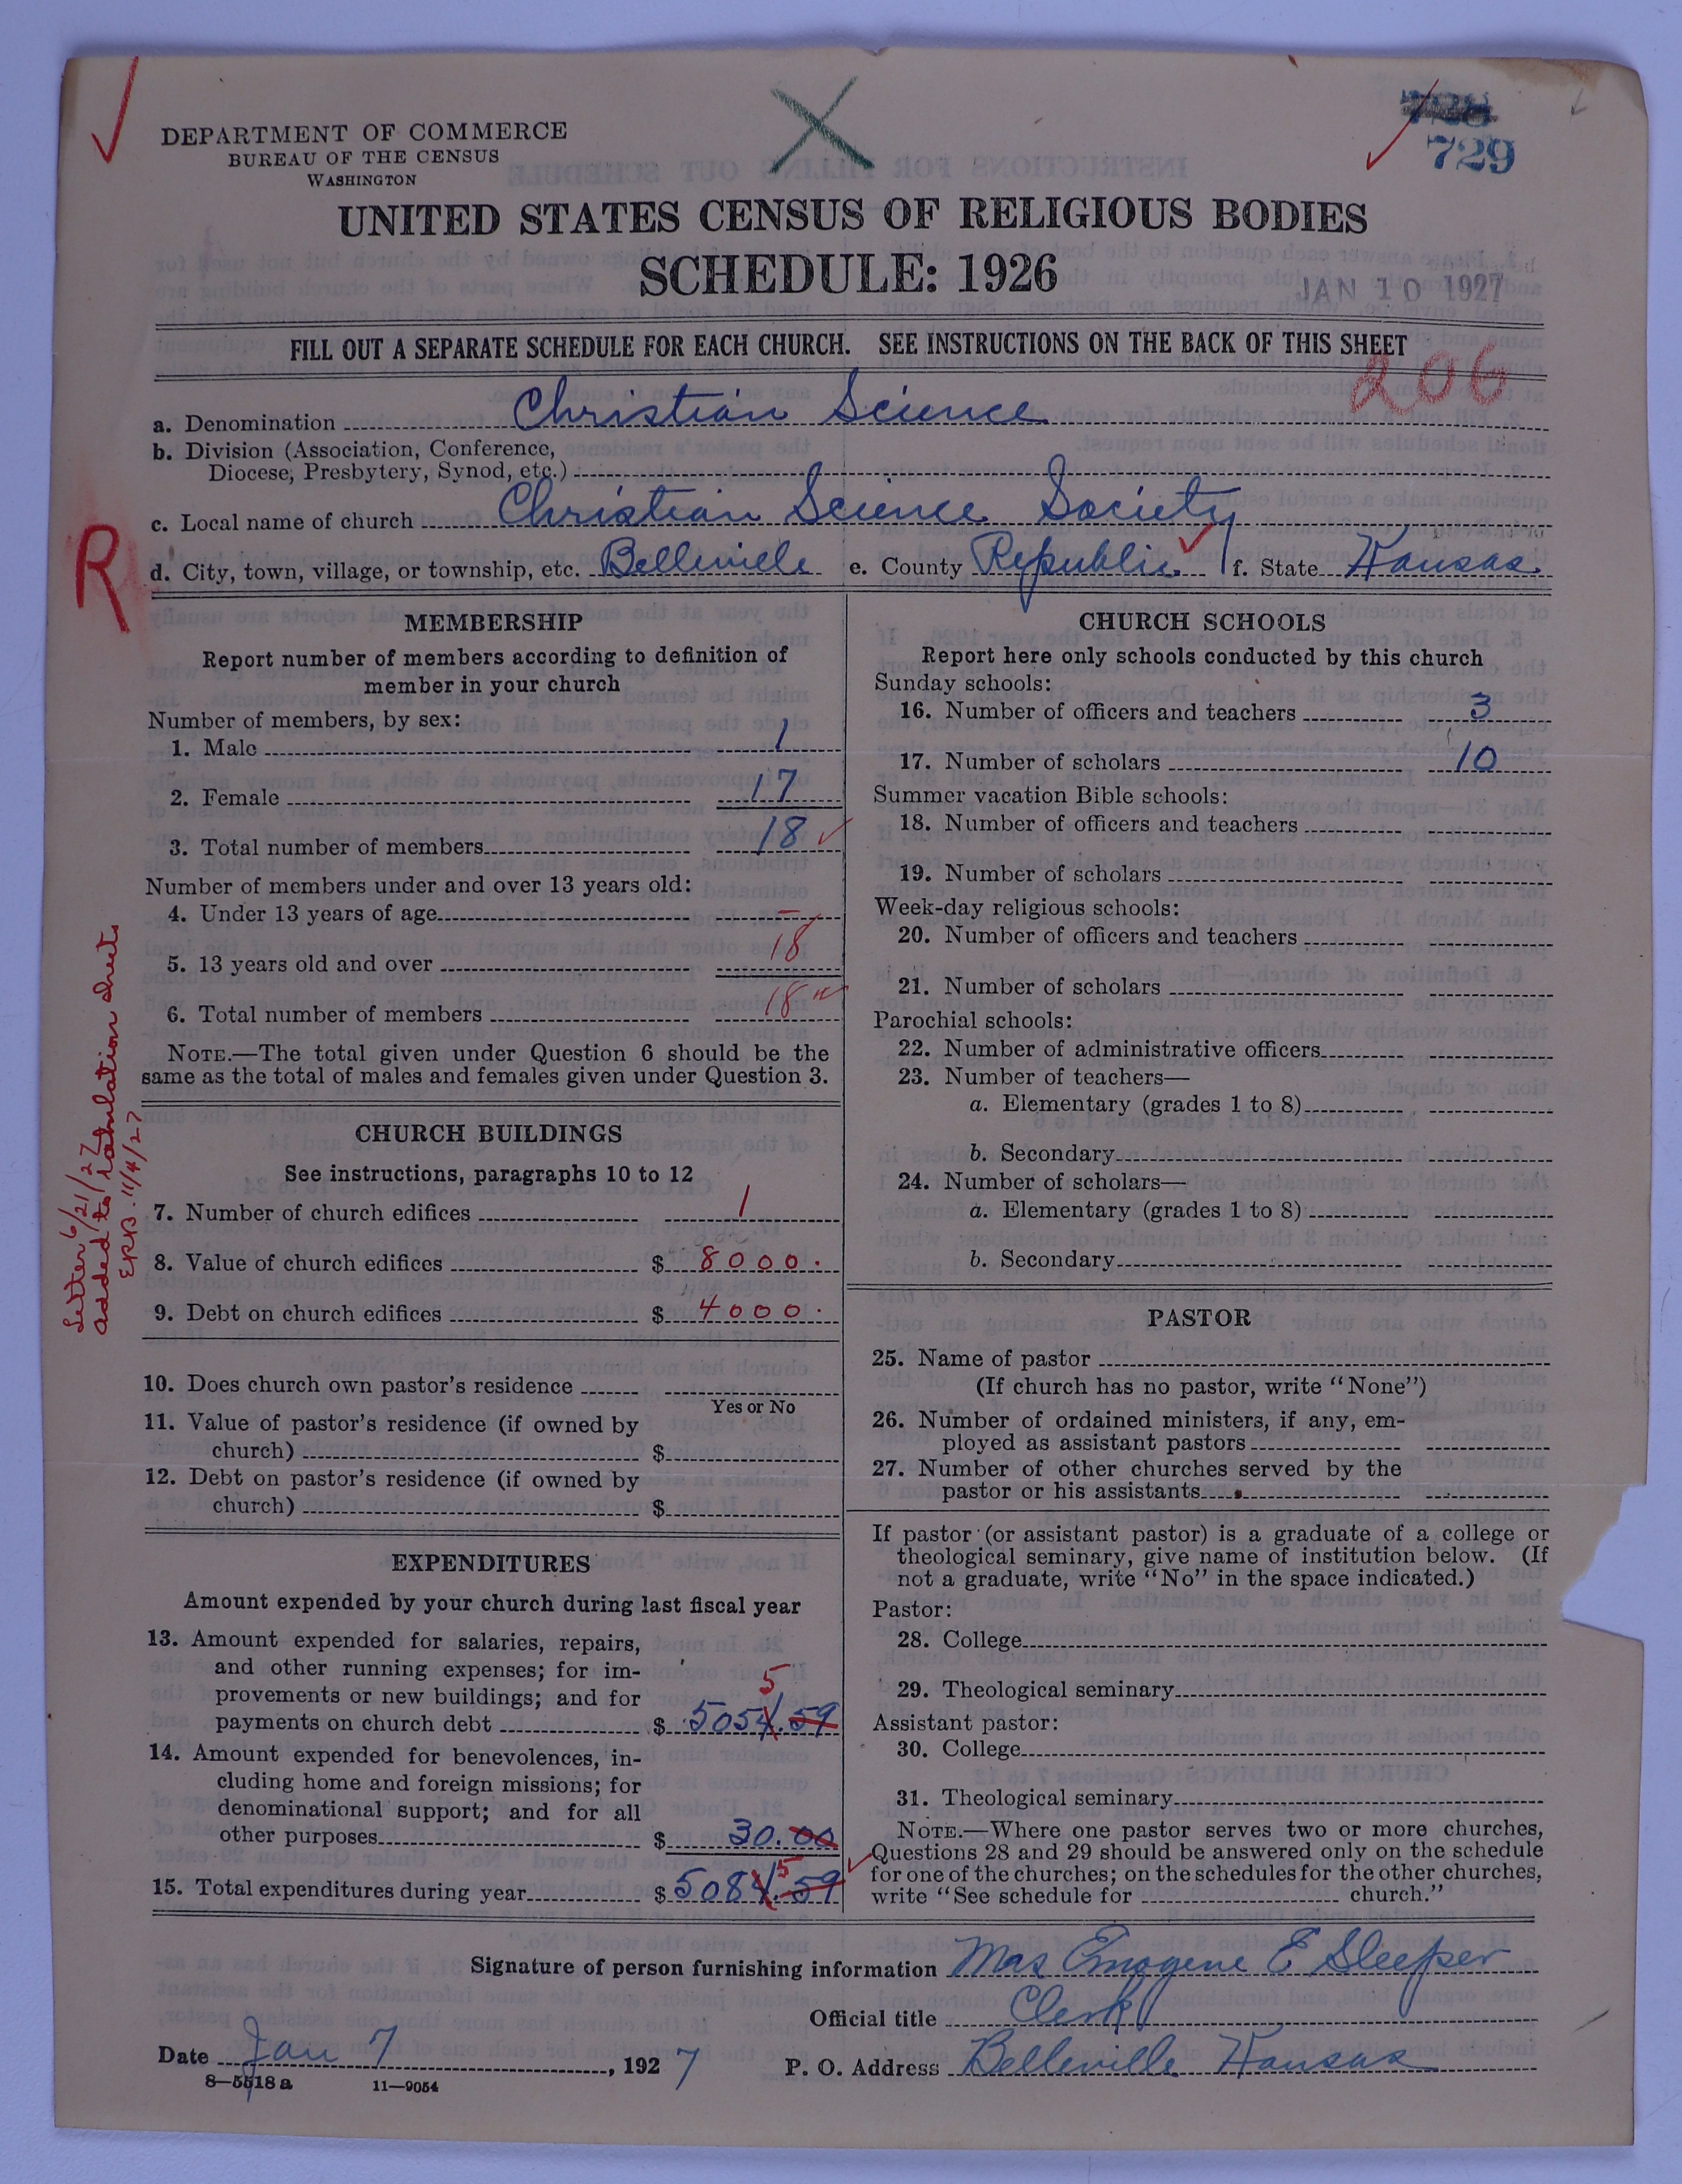 DEPARTMENT OF COMMERCE
BUREAU OF THE CENSUS
WASHINGTON
729
UNITED STATES CENSUS OF RELIGIOUS BODIES
SCHEDULE: 1926
JAN 10 1927
FILL OUT A SEPARATE SCHEDULE FOR EACH CHURCH. SEE INSTRUCTIONS ON THE BACK OF THIS SHEET
206
a. Denomination Christian Science
b. Division (Association, Conference,
Diocese, Presbytery, Synod, etc.)
c. Local name of church Christian Science Society
R
d. City, town, village, or township, etc. Belleville e. County Republic f. State Kansas
MEMBERSHIP
Report number of members according to definition of
member in your church
Number of members, by sex:
1. Male 1
2. Female 17
3. Total number of members 18
Number of members under and over 13 years old:
4. Under 13 years of age –
5. 13 years old and over 18
6. Total number of members 18
NOTE.—The total given under Question 6 should be the
same as the total of males and females given under Question 3.
CHURCH BUILDINGS
See instructions, paragraphs 10 to 12
7. Number of church edifices 1
8. Value of church edifices $ 8000.
9. Debt on church edifices $ 4000.
10. Does church own pastor's residence
Yes or No
11. Value of pastor's residence (if owned by
church) $
12. Debt on pastor's residence (if owned by
church) $
EXPENDITURES
Amount expended by your church during last fiscal year
13. Amount expended for salaries, repairs,
and other running expenses; for im-
provements or new buildings; and for
5
payments on church debt $ 5054.59
14. Amount expended for benevolences, in-
cluding home and foreign missions; for
denominational support; and for all
other purposes $ 30.00
5
15. Total expenditures during year $ 5084.59
Letter 6/21/27
added to tabulation sheet
ERB. 11/4/27
CHURCH SCHOOLS
Report here only schools conducted by this church
Sunday schools:
16. Number of officers and teachers 3
17. Number of scholars 10
Summer vacation Bible schools:
18. Number of officers and teachers
19. Number of scholars
Week-day religious schools:
20. Number of officers and teachers
21. Number of scholars
Parochial schools:
22. Number of administrative officers
23. Number of teachers—
a. Elementary (grades 1 to 8)
b. Secondary
24. Number of scholars—
a. Elementary (grades 1 to 8)
b. Secondary
PASTOR
25. Name of pastor
(If church has no pastor, write "None")
26. Number of ordained ministers, if any, em-
ployed as assistant pastors
27. Number of other churches served by the
pastor or his assistants
If pastor (or assistant pastor) is a graduate of a college or
theological seminary, give name of institution below. (If
not a graduate, write "No" in the space indicated.)
Pastor:
28. College
29. Theological seminary
Assistant pastor:
30. College
31. Theological seminary
NOTE.—Where one pastor serves two or more churches,
Questions 28 and 29 should be answered only on the schedule
for one of the churches; on the schedules for the other churches,
write "See schedule for church."
Signature of person furnishing information Mrs Emogene E Sleeper
Official title Clerk
Date Jan 7, 1927 P. O. Address Belleville Kansas
8—5518 a 11—9054